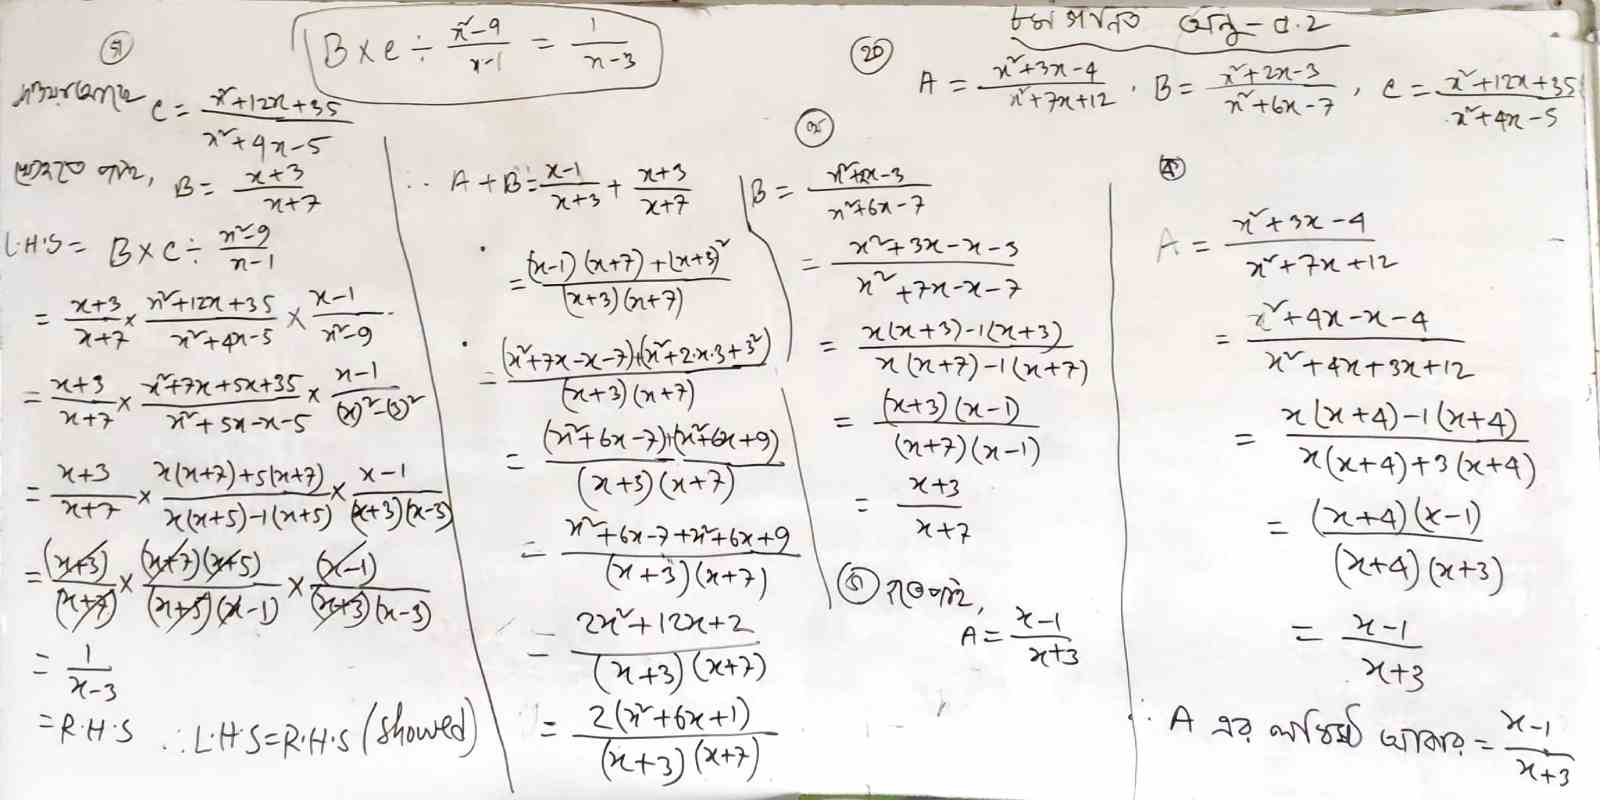 ৮ম গণিত অনু-৫.২
২০
A = (x²+3x-4)/(x²+7x+12), B = (x²+2x-3)/(x²+6x-7), C = (x²+12x+35)/(x²+4x-5)
ক
A = (x²+3x-4)/(x²+7x+12)
= (x²+4x-x-4)/(x²+4x+3x+12)
= (x(x+4)-1(x+4))/(x(x+4)+3(x+4))
= ((x+4)(x-1))/((x+4)(x+3))
= (x-1)/(x+3)
∴ A এর লঘিষ্ট আকার = (x-1)/(x+3)
খ
B = (x²+2x-3)/(x²+6x-7)
= (x²+3x-x-3)/(x²+7x-x-7)
= (x(x+3)-1(x+3))/(x(x+7)-1(x+7))
= ((x+3)(x-1))/((x+7)(x-1))
= (x+3)/(x+7)
A = (x-1)/(x+3)
∴ A+B = (x-1)/(x+3) + (x+3)/(x+7)
= ((x-1)(x+7)+(x+3)²)/((x+3)(x+7))
= ((x²+7x-x-7)+(x²+2.x.3+3²))/((x+3)(x+7))
= ((x²+6x-7)+(x²+6x+9))/((x+3)(x+7))
= (x²+6x-7+x²+6x+9)/((x+3)(x+7))
= (2x²+12x+2)/((x+3)(x+7))
= (2(x²+6x+1))/((x+3)(x+7))
গ
B×C÷(x²-9)/(x-1) = 1/(x-3)
C = (x²+12x+35)/(x²+4x-5)
B = (x+3)/(x+7)
L.H.S = B×C÷(x²-9)/(x-1)
= (x+3)/(x+7) × (x²+12x+35)/(x²+4x-5) × (x-1)/(x²-9)
= (x+3)/(x+7) × (x²+7x+5x+35)/(x²+5x-x-5) × (x-1)/((x)²-(3)²)
= (x+3)/(x+7) × (x(x+7)+5(x+7))/(x(x+5)-1(x+5)) × (x-1)/((x+3)(x-3))
= (x+3)/(x+7) × ((x+7)(x+5))/((x+5)(x-1)) × (x-1)/((x+3)(x-3))
= 1/(x-3)
= R.H.S ∴ L.H.S = R.H.S (showed)